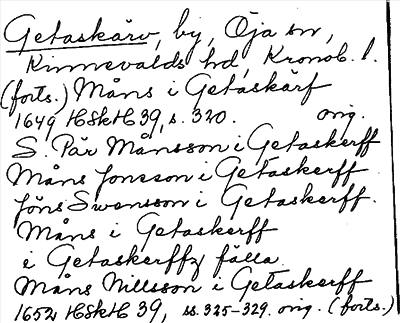 Getaskärv, by, Öja sn,
Kinnevalds hd, Kronob. l.
(forts.) Måns i Getaskärf
1649 HSkH 39, s. 320. orig.
S. Pär Månsson i Getaskerff
Måns Jonsson i Getaskerff
Jöns Swensson i Getaskerff.
Måns i Getaskerff
i Getaskerffz fälla
Måns Nillsson i Getaskerff
1652 HSkH 39, ss. 325-329. orig. (forts.)